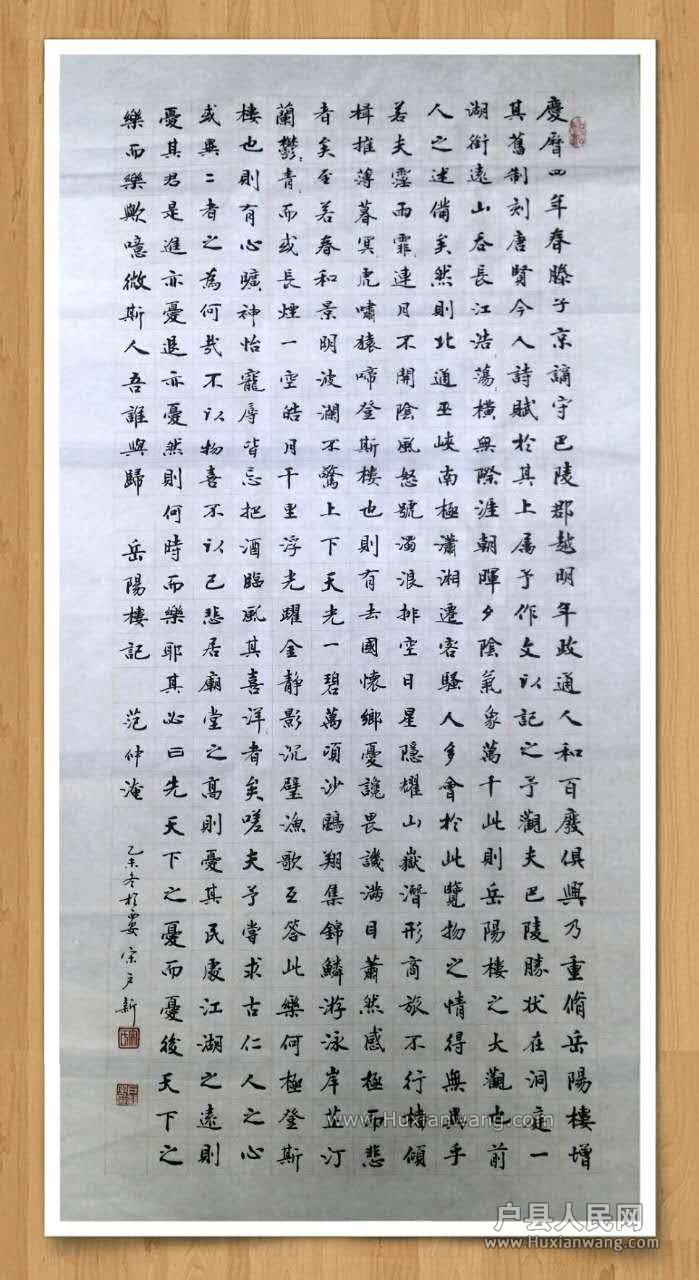 慶曆四年春滕子京謫守巴陵郡越明年政通人和百廢俱興乃重脩岳陽樓增
其舊制刻唐賢今人詩賦於其上屬予作文以記之予觀夫巴陵勝狀在洞庭一
湖銜遠山吞長江浩蕩橫無際涯朝暉夕陰氣象萬千此則岳陽樓之大觀也前
人之述備矣然則北通巫峽南極瀟湘遷客騷人多會於此覽物之情得無異乎
若夫霪雨霏連月不開陰風怒號濁浪排空日星隱耀山嶽潛形商旅不行檣傾
楫摧薄暮冥虎嘯猿啼登斯樓也則有去國懷鄉憂讒畏譏滿目蕭然感極而悲
者矣至若春和景明波瀾不驚上下天光一碧萬頃沙鷗翔集錦鱗游泳岸芷汀
蘭鬱青而或長煙一空皓月千里浮光躍金靜影沉璧漁歌互答此樂何極登斯
樓也則有心曠神怡寵辱皆忘把酒臨風其喜洋者矣嗟夫予嘗求古仁人之心
或異二者之為何哉不以物喜不以己悲居廟堂之高則憂其民處江湖之遠則
憂其君是進亦憂退亦憂然則何時而樂耶其必曰先天下之憂而憂後天下之
樂而樂歟噫微斯人吾誰與歸 岳陽樓記 范仲淹
乙未冬於
www.Huxianwang.com
户县人民网
www.Huxianwang.com